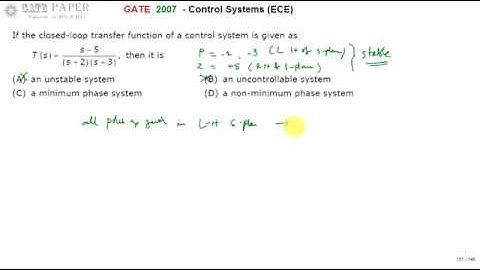 GATE PAPER
GATE 2007 - Control Systems (ECE)
If the closed-loop transfer function of a control system is given as
T(s) = s-5 / (s+2)(s+3), then it is
P = -2, -3 (L H of s-plan)
stable
Z = +5 (R H of s-plan)
(A) an unstable system
(B) an uncontrollable system
(C) a minimum phase system
(D) a non-minimum phase system
all poles in L-H S-plan →